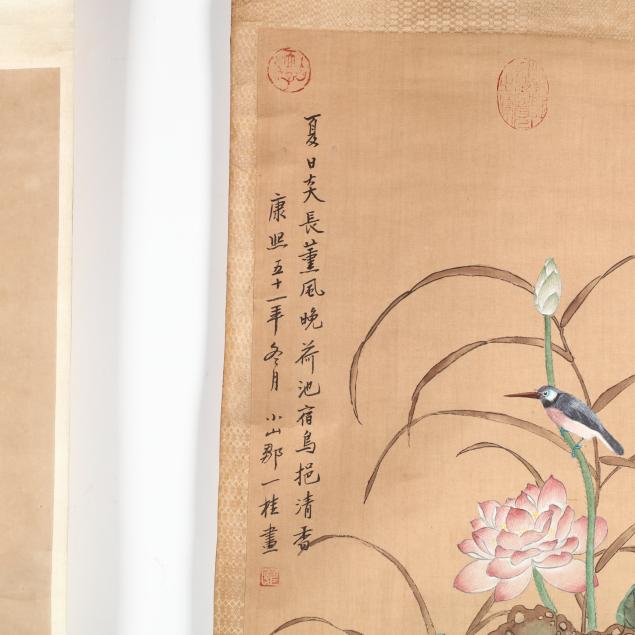 夏日天長薰風晚荷池宿鳥挹清香
康熙五十一年冬月 小山鄒一桂畫